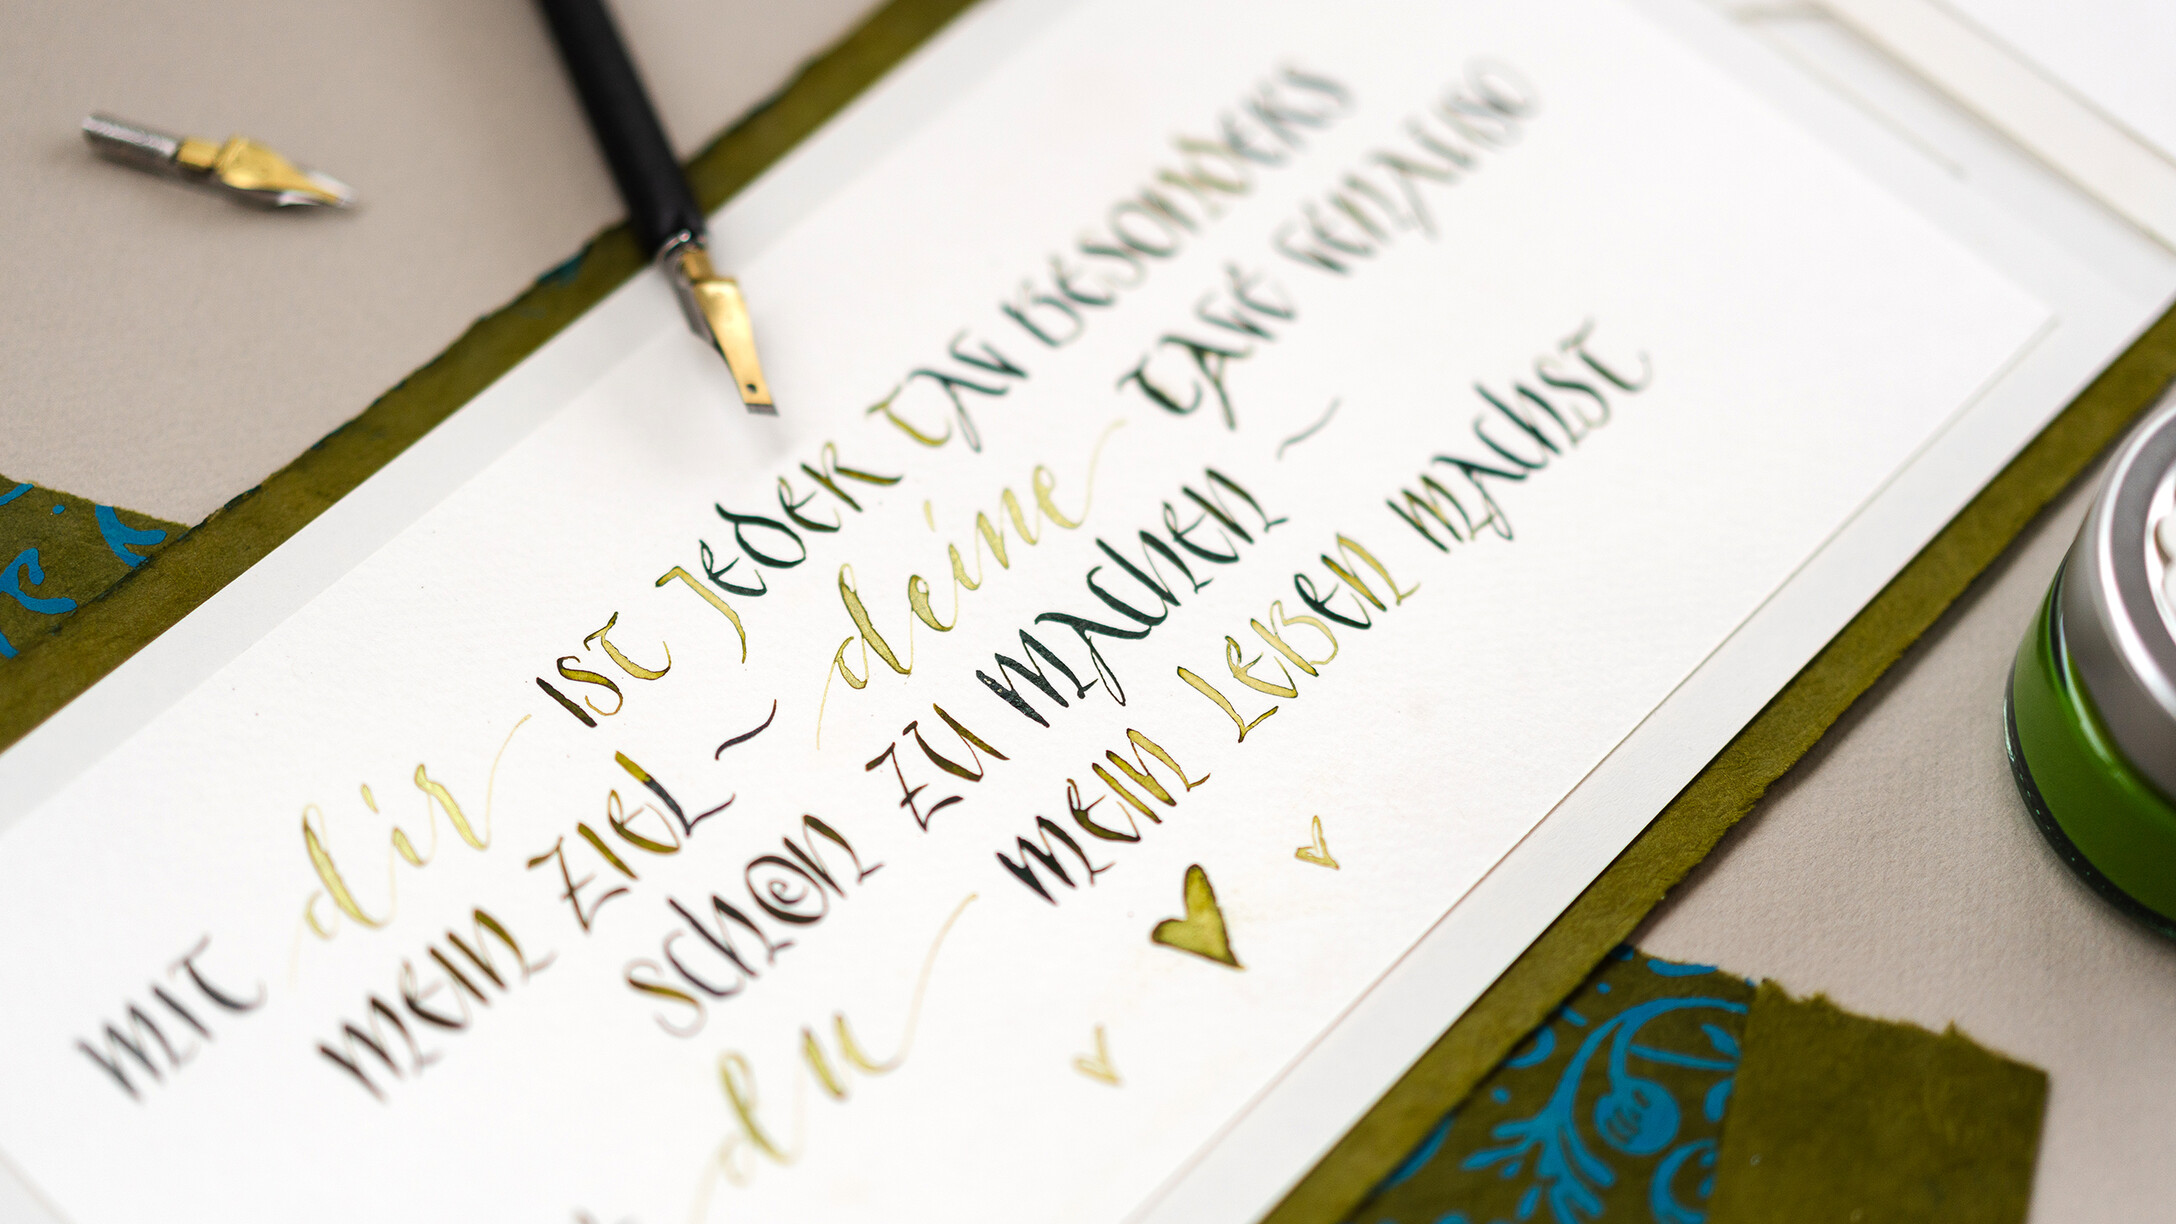 MIT dir IST JEDER TAG BESONDERS
MEIN ZIEL ~ deine TAGE GENAUSO
SCHÖN ZU MACHEN ~
du MEIN LEBEN MACHST